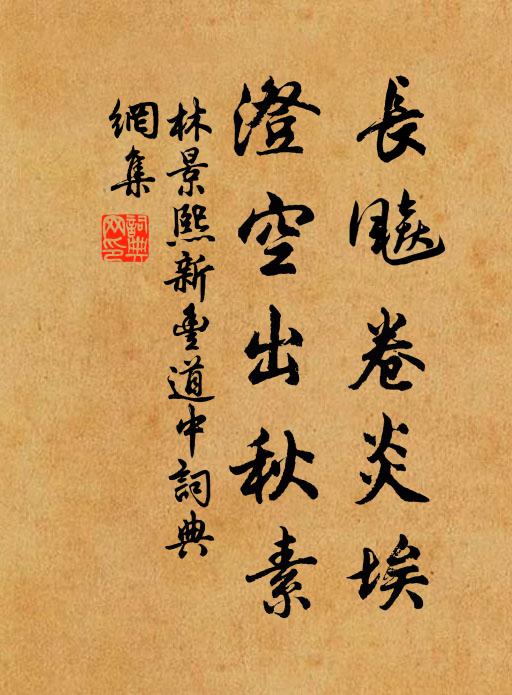 長飈卷炎埃
澄空出秋素
林景熙新豐道中詞典
網集
詞典
网印